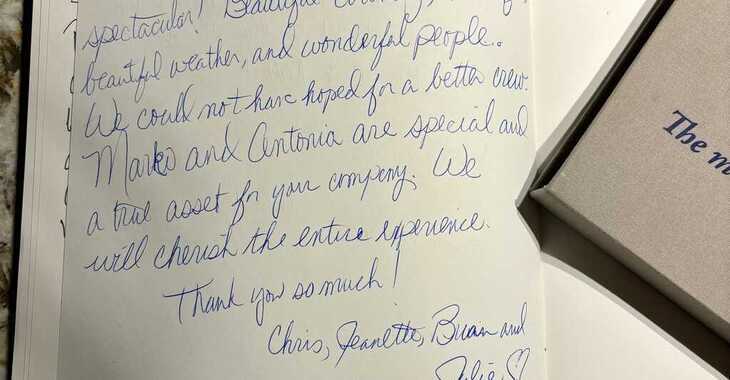 spectacular! Beautiful
beautiful weather, and wonderful people.
We could not have hoped for a better crew.
Marko and Antonia are special and
a true asset for your company. We
will cherish the entire experience.
Thank you so much!
Chris, Jeanette, Brian and
Julie
The m